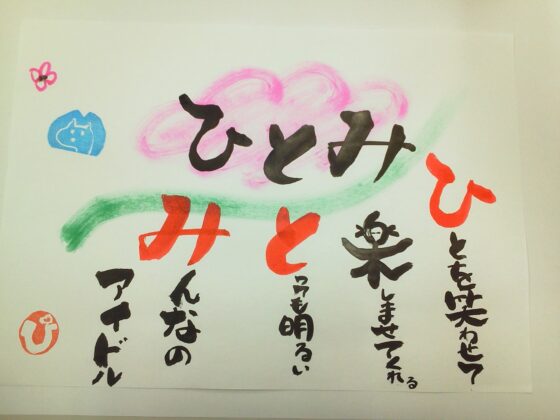 ひとみ
ひとを笑わせて
楽しませてくれる
とっても明るい
みんなの
アイドル
ひ